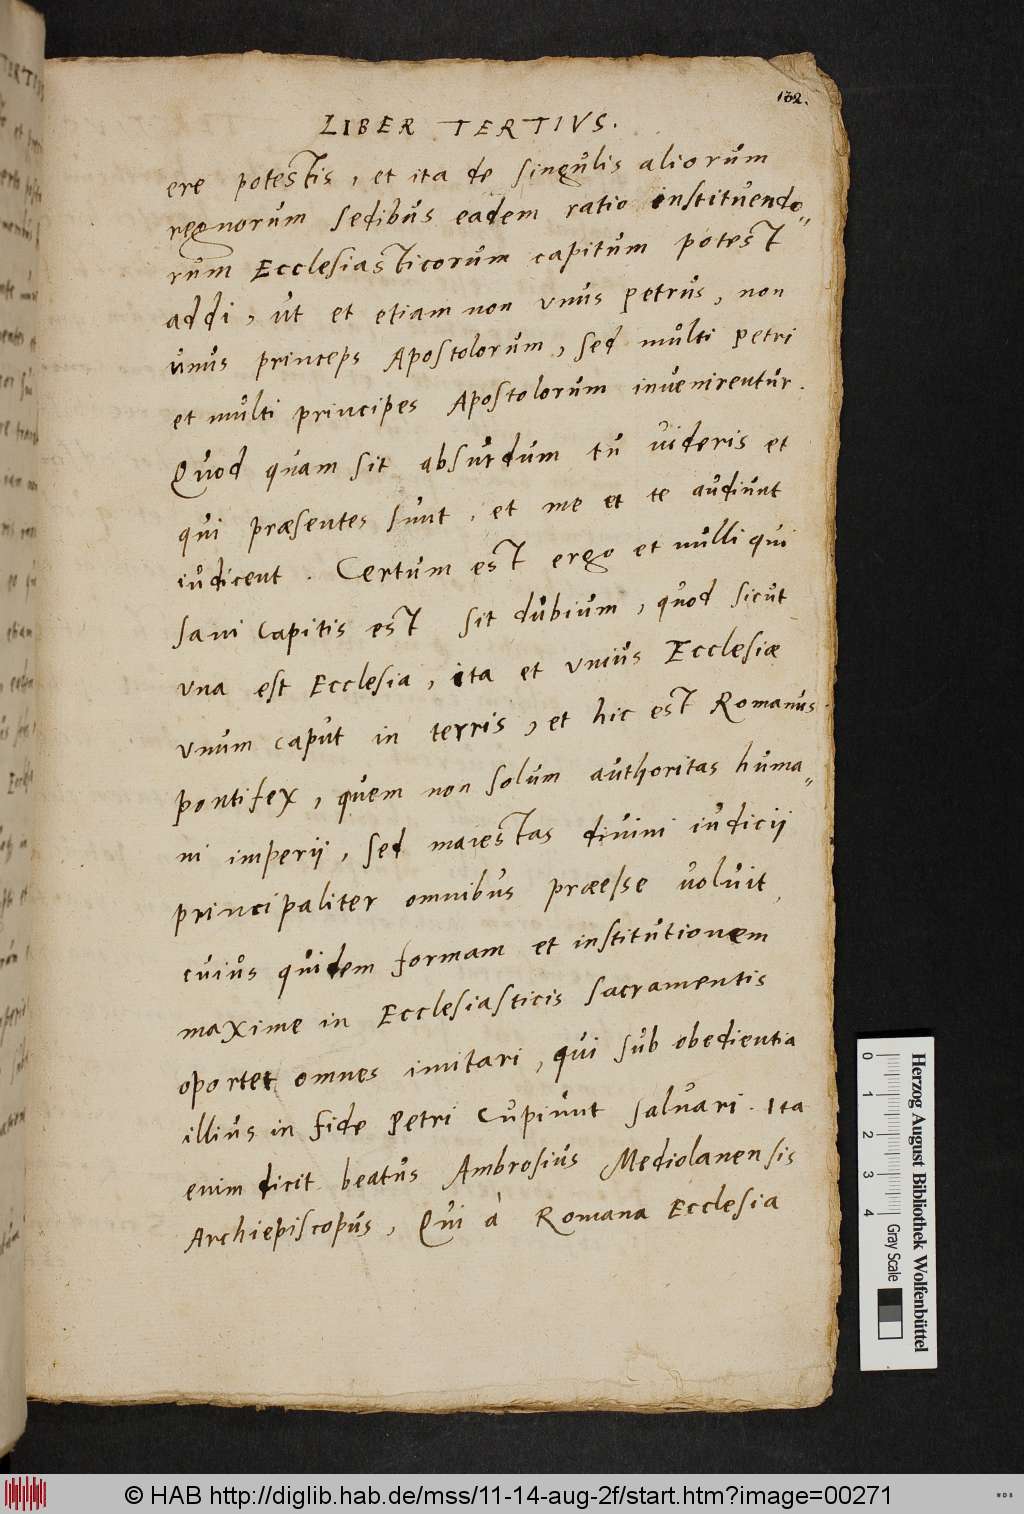 132.
LIBER TERTIVS.
ere potestis, et ita de singulis aliorum
regnorum sedibus eadem ratio instituendo„
rum Ecclesiasticorum capitum potest
addi, ut et etiam non vnus petrus, non
unus princeps Apostolorum, sed multi petri
et multi principes Apostolorum invenirentur.
Quod quam sit absurdum tu videris et
qui præsentes sunt, et me et te audiunt
iudicent. Certum est ergo et nulli qui
sani capitis est sit dubium, quod sicut
vna est Ecclesia, ita et vnius Ecclesiæ
vnum caput in terris, et hic est Romanus
pontifex, quem non solum authoritas huma„
ni imperii, sed maiestas divini iudicii
principaliter omnibus præesse voluit,
cuius quidem formam et institutionem
maxime in Ecclesiasticis sacramentis
oportet omnes imitari, qui sub obedientia
illius in fide Petri cupiunt salvari. Ita
enim dicit beatus Ambrosius Mediolanensis
Archiepiscopus, Qui à Romana Ecclesia
Herzog August Bibliothek Wolfenbüttel
0 1 2 3 4 Gray Scale
© HAB http://diglib.hab.de/mss/11-14-aug-2f/start.htm?image=00271